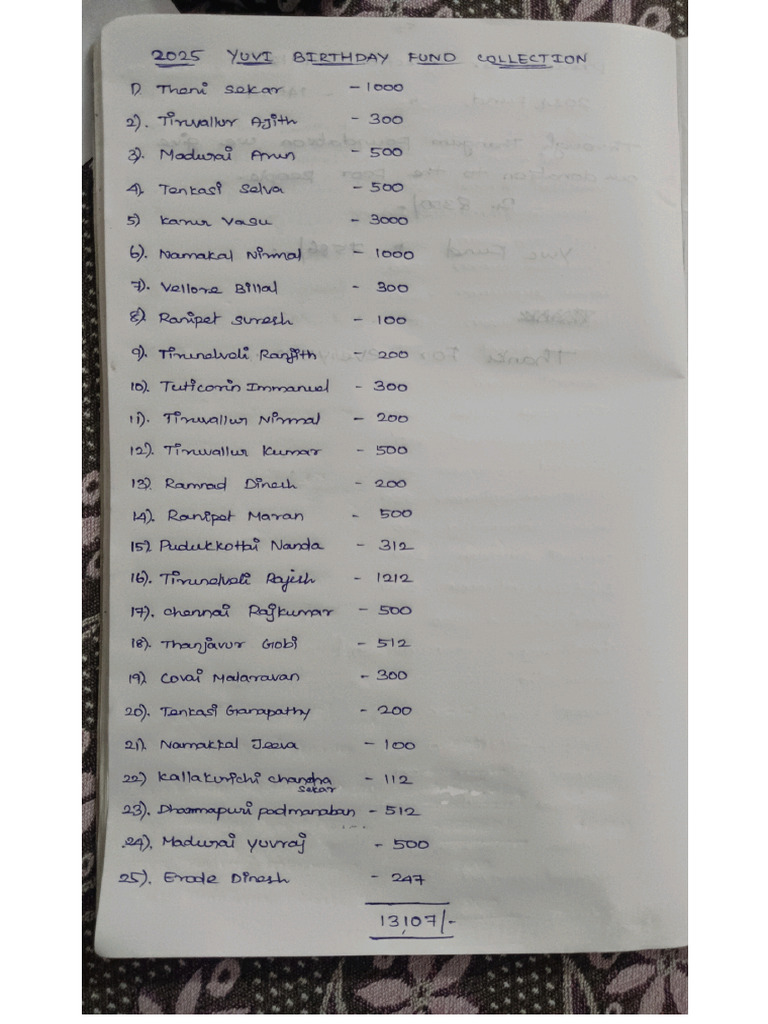 2025 YUVI BIRTHDAY FUND COLLECTION
1). Theni Sekar - 1000
2). Tiruvallur Ajith - 300
3). Madurai Arun - 500
4). Tenkasi Selva - 500
5) Karur Vasu - 3000
6). Namakal Nirmal - 1000
7). Vellore Billal - 300
8). Ranipet Suresh - 100
9). Tirunelveli Ranjith - 200
10). Tuticorin Immanuel - 300
11). Tiruvallur Nirmal - 200
12). Tiruvallur Kumar - 500
13). Ramnad Dinesh - 200
14). Ranipet Maran - 500
15). Pudukkottai Nanda - 312
16). Tirunelveli Rajesh - 1212
17). Chennai Rajkumar - 500
18). Thanjavur Gobi - 512
19). Covai Malaravan - 300
20). Tenkasi Ganapathy - 200
21). Namakkal Jeeva - 100
22) Kallakurichi Chandra Sekar - 112
23). Dharmapuri Padmanaban - 512
24). Madurai Yuvraj - 500
25). Erode Dinesh - 247
13,107/-